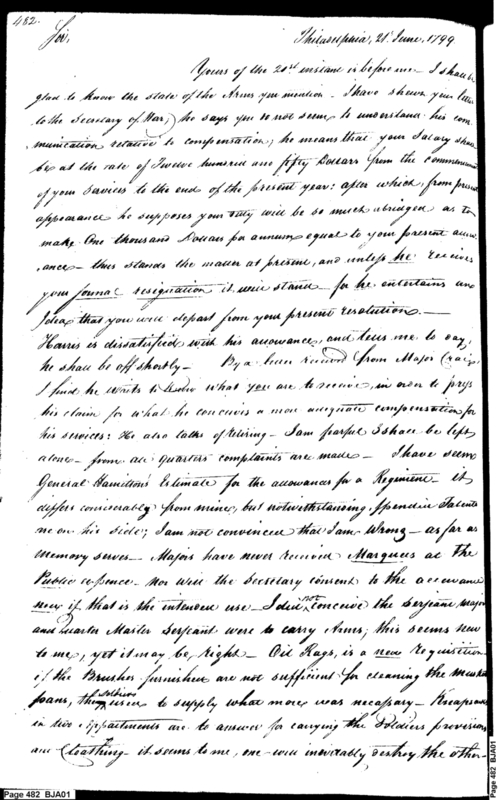 482.
Sir,
Philadelphia, 21st June, 1799
Yours of the 20st instant is before me— I shall be
glad to know the state of the Arms you mention. I have shewn your letter
to the Secretary of War; he says you do not seem to understand his com
munication relative to compensation; he means that your Salary shall
be at the rate of Twelve hundred and fifty Dollars from the commencement
of your Services to the end of the present year: after which, from present
appearance he supposes your duty will be so much abridged as to
make One thousand Dollars per annum equal to your present allow
ance— thus stands the matter at present, and unless he receives
your formal resignation it will stand— for he entertains no
Idea that you will depart from your present resolution.—
Harris is dissatisfied with his allowance, and tells me to say,
he shall be off shortly— By a letter received from Major Craig
I find he wants to know what you are to receive, in order to press
his claim for what he conceives a more adequate compensation for
his services: He also talks of retiring— I am fearful I shall be left
alone— from all quarters complaints are made— I have seen
General Hamilton's Estimate for the allowances for a Regiment— it
differs considerably from mine, but notwithstanding splendid Talents
are on his side; I am not convinced that I am Wrong— as far as
Memory serves— Majors have never received Marquees at the
Public expence— nor will the Secretary consent to the allowance
now if that is the intended use— I did not conceive the Serjeant Major
and Quarter Master Serjeant were to carry Arms; this seems new
to me; yet it may be right— Oil Rags, is a new requisition
if the Brushes furnished are not sufficient for cleaning the musket
pans, the soldiers used to supply what more was necessary— Knapsacks
in two Appartments are to answer for carrying the Soldiers provisions
and Cloathing— it seems to me, one will inevitably destroy the other—
Page 482 BJA01
Page 482 BJA01